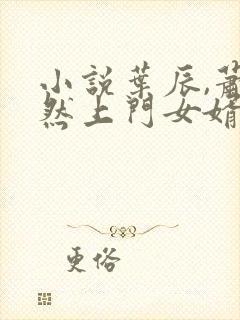 小說葉辰,蕭
然上門女婿
更俗